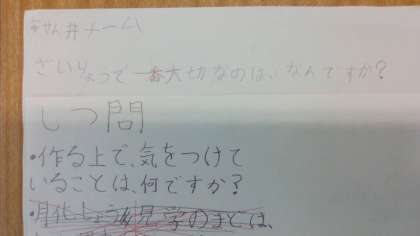 井チーム
ざいりょうで一番大切なのは、なんですか?
しつ問
・作る上で、気をつけて
いることは、何ですか?
見学のまとは、